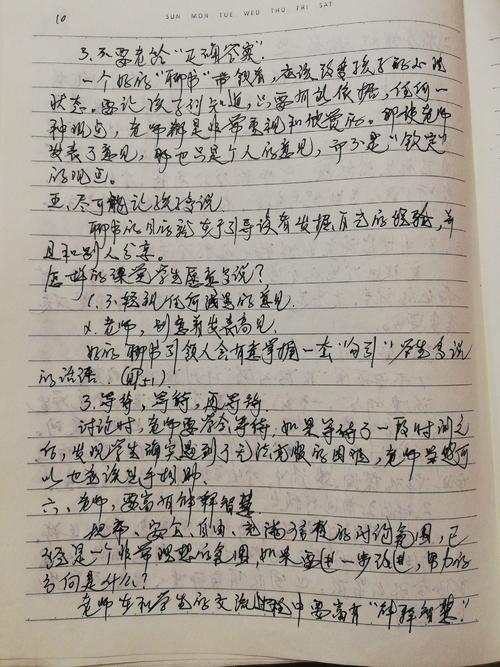 10
SUN MON TUE WED THU FRI SAT
3.不要老给“正确答案”
一个好的“聊书”带领者,应该改善孩子的心理
状态。要让孩子们知道,只要有依据,任何一
种观点,老师都是非常重视和欣赏的。即使老师
发表了意见,那也只是个人的意见,而不是“钦定”
的观点。
五、尽可能让孩子说
聊书的目的就在于引导读者发掘自己的经验,并
且和别人分享。
怎样的课堂学生愿意多说?
1.不轻视任何浅显的意见
2.老师,别急着发表高见
好的聊书引领人会有意掌握一套“勾引”学生多说
的话语.
3.等待,等待,再等待.
讨论时,老师要学会等待.如果等待了一段时间之
后,发现学生确实遇到了无法克服的困难,老师
以也应该出手相助.
六、老师,要富有解释智慧
把安全、自由、充满的讨论氛围,已
经是一个非常理想的氛围,如果要进一步改进,努力的
方向是什么?
老师在和学生的交流过程中要富有“解释智慧”.